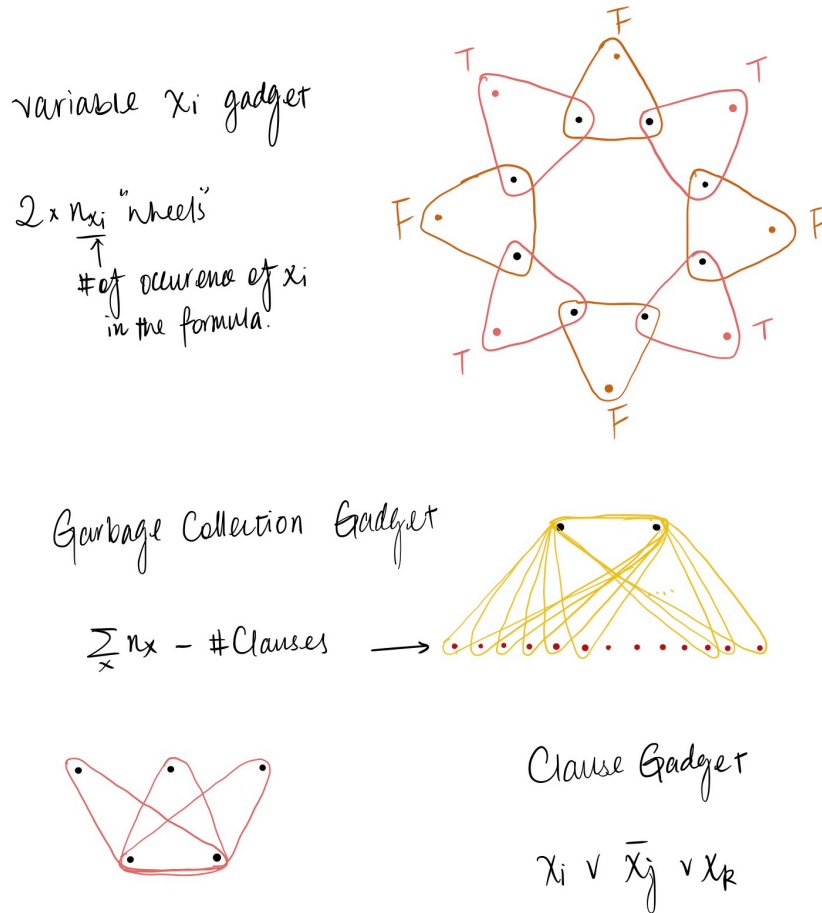 variable xi gadget
2 × nxi "wheels"
↑
# of occurence of xi
in the formula.
F
T
T
F
F
T
T
F
Garbage Collection Gadget
∑x nx − #Clauses →
...
Clause Gadget
xi ∨ x̄j ∨ xk